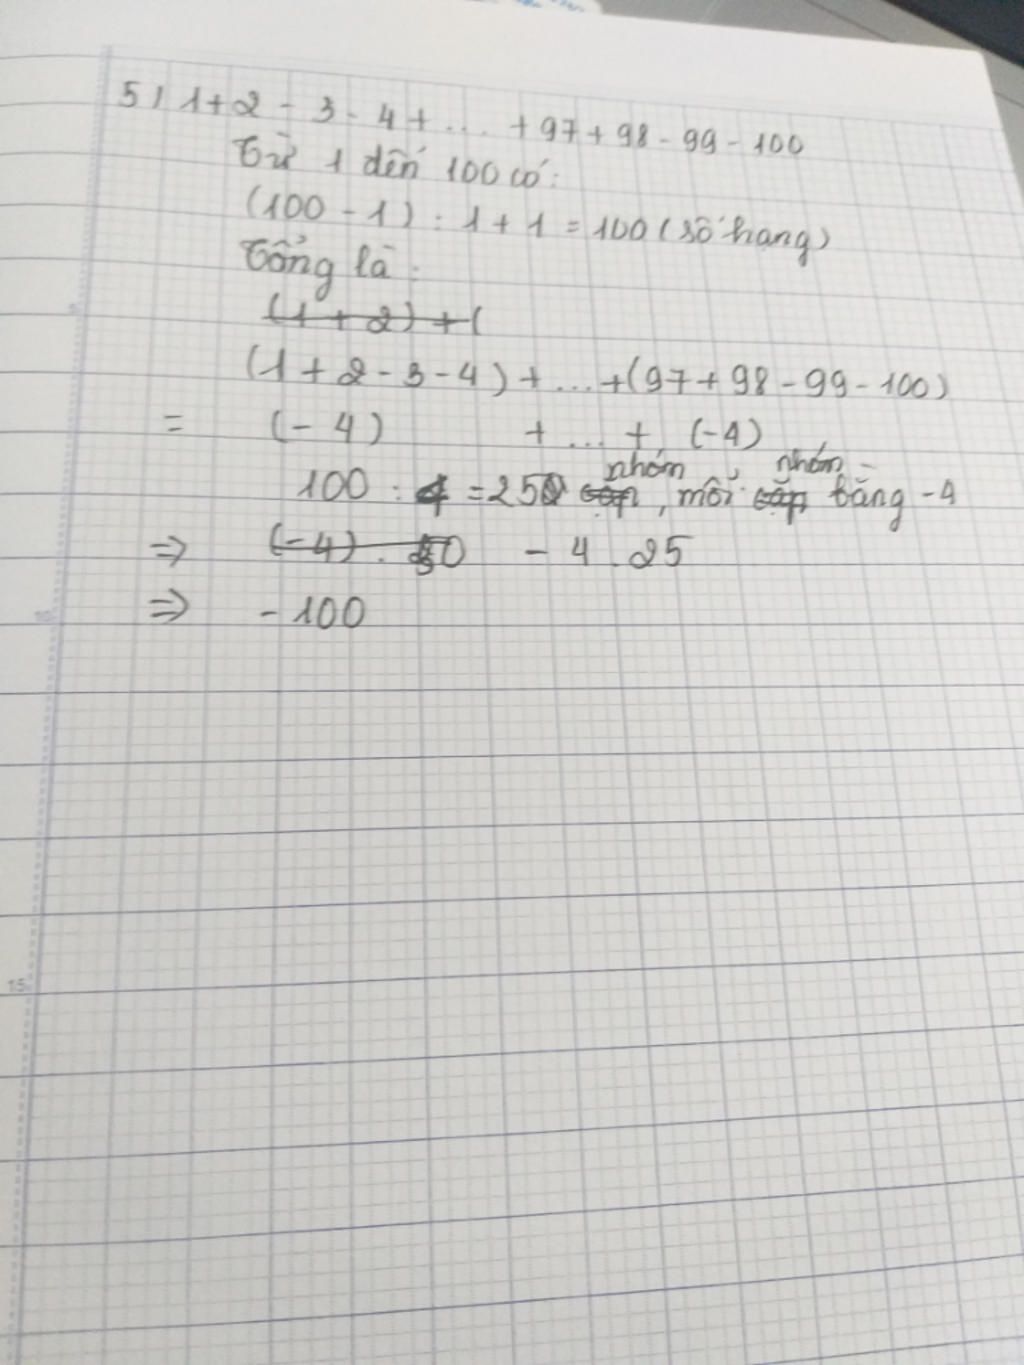 5) 1+2-3-4+...+97+98-99-100
Từ 1 đến 100 có:
(100-1):1+1=100 (số hạng)
Tổng là:
(1+2)+(
(1+2-3-4)+...+(97+98-99-100)
= (-4) +...+ (-4)
nhóm nhóm
100 : 4 = 25 cặp, mỗi cặp bằng -4
⇒ (-4). 50 -4.25
⇒ -100